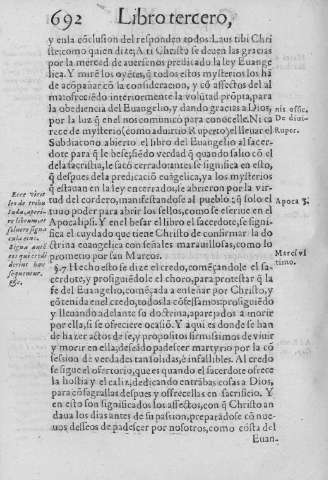 692 Libro tercero,
y en la cõclusion del responden todos: Laus tibi Chri
ste: como quien dize; A ti Christo se deuen las gracias
por la merced de auersenos predicado la ley Euange
lica. Y mirẽ los oyẽtes, q̃ todos estos mysterios los hã
de acopañar cõ la consideracion, y cõ affectos del al
ma: ofreciẽdo interiormente la volũtad prõpta, para
la obediencia del Euangelio, y dando gracias a Dios,
por la luz q̃ en el nos comunicò para conocelle. Ni ca
rece de mysterio (como aduirtio Ruperto) el lleuar el
Subdiacono abierto el libro del Euangelio al sacer-
dote para q̃ le bese, siẽdo verdad q̃ quando salio cõ el
dela sacristia, le sacò cerrado: antes se significa en esto,
q̃ despues dela predicaciõ euãgelica, ya los mysterios
q̃ estauan en la ley encerrados, se abrieron por la vir-
tud del cordero, manifestandose al pueblo: q̃ solo el
tuuo poder para abrir los sellos, como se escriue en el
Apocalipsi. Y en besar el libro el sacerdote, se signi-
fica el cuydado que tiene Christo de confirmar la do
ctrina euangelica con señales marauillosas, como lo
prometio por san Marcos.
§. 7. Hecho esto se dize el credo, comẽçandole el sa-
cerdote, y prosiguiẽdole el choro, para protestar q̃ la
fe del Euangelio, comẽçada a enseñar por Christo, y
cõtenida en el credo, todos la cõfessamos: prosiguiẽdo
y lleuando adelante su doctrina, aparejados a morir
por ella, si se ofreciere ocasiõ. Y aqui es donde se han
de hazer actos de fe, y propositos firmissimos de viuir
y morir en ella, deseãdo padescer martyrio por la cõ
fession de verdades tan solidas, è infalibles. Al credo
se sigue el ofertorio, que es quando el sacerdote ofrece
la hostia y el caliz, dedicando entrãbas cosas a Dios,
para cõsagrallas despues y offrecellas en sacrificio. Y
en esto son significados los affectos, con q̃ Christo an
daua los dias antes de su passion, preparãdose cõ nue-
uos desseos de padescer por nosotros, como cõsta del
Euan-
nis offic.
De diui-
Ruper.
Apoca 5.
Marci vl
timo.
de tribu
Iuda,